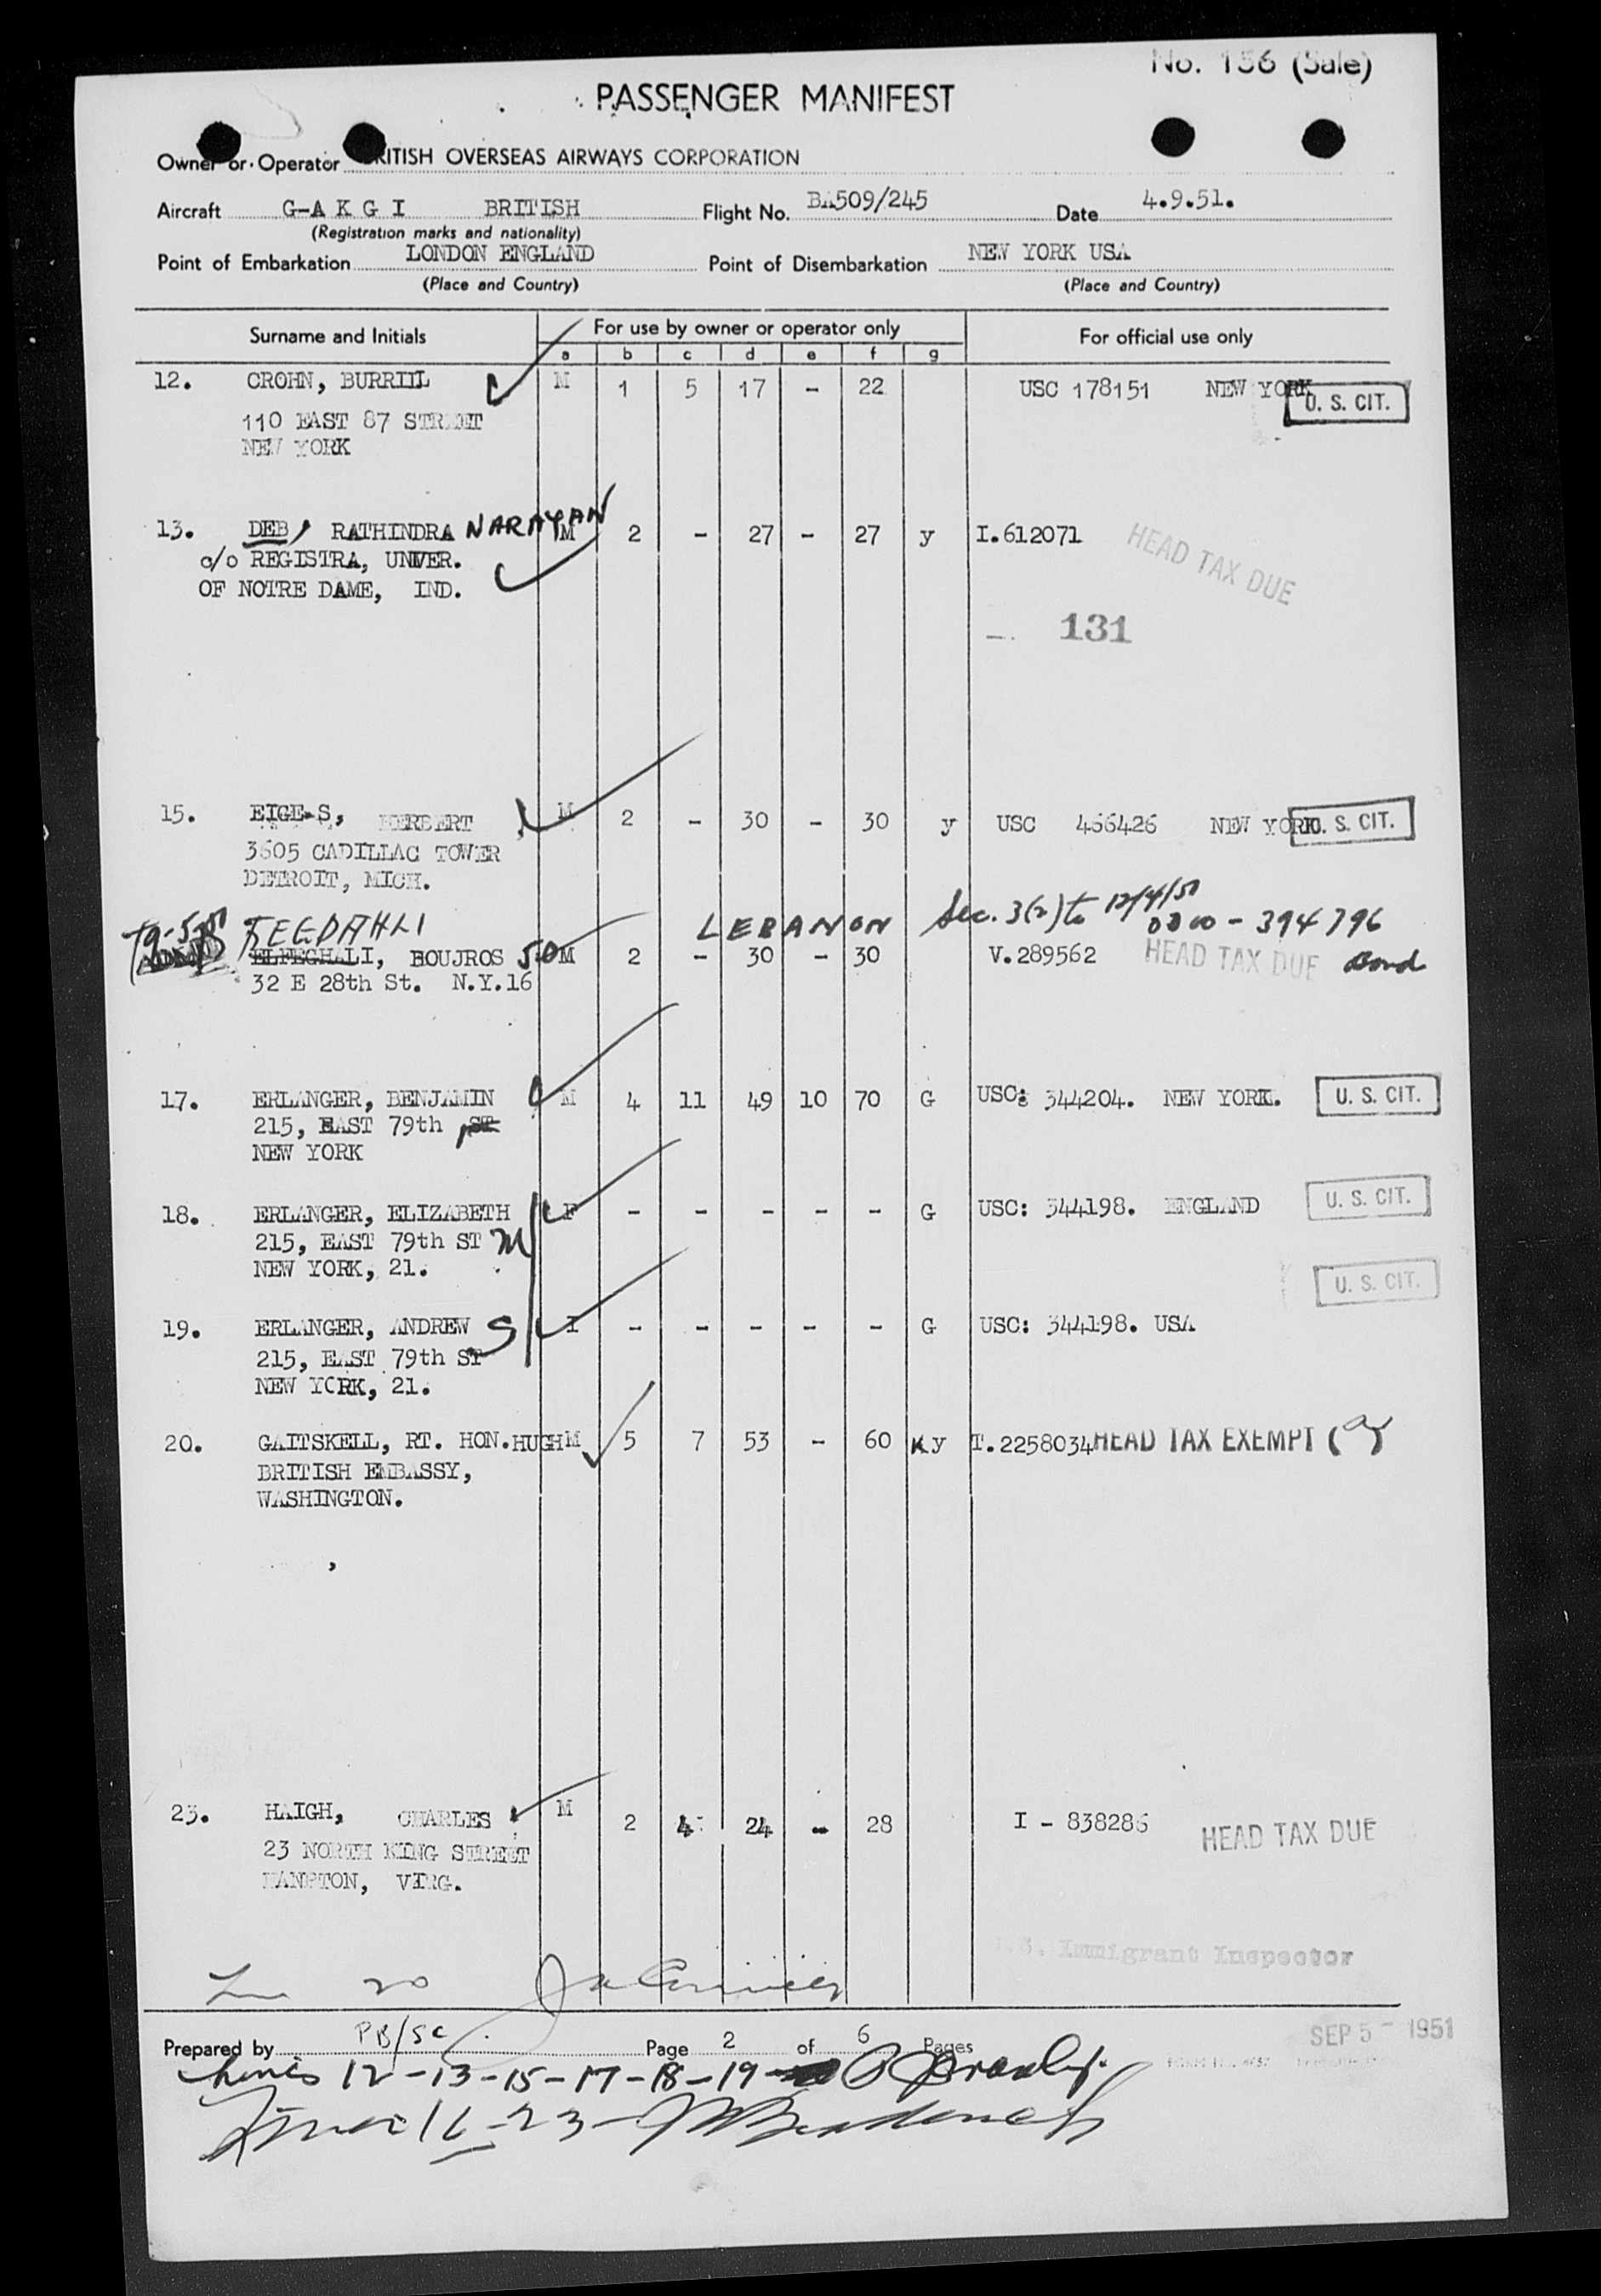 No. 156 (Sale)
PASSENGER MANIFEST
Owner or Operator BRITISH OVERSEAS AIRWAYS CORPORATION
Aircraft G-A K G I BRITISH Flight No. BA509/245 Date 4.9.51.
(Registration marks and nationality)
Point of Embarkation LONDON ENGLAND Point of Disembarkation NEW YORK USA
(Place and Country) (Place and Country)
Surname and Initials For use by owner or operator only For official use only
a b c d e f g
12. CROHN, BURRILL M 1 5 17 - 22 USC 178151 NEW YORK U. S. CIT.
110 EAST 87 STREET
NEW YORK
13. DEB, RATHINDRA NARAYAN M 2 - 27 - 27 y I.612071 HEAD TAX DUE
c/o REGISTRA, UNIVER.
OF NOTRE DAME, IND.
131
15. EIGES, HERBERT M 2 - 30 - 30 y USC 466426 NEW YORK U. S. CIT.
3605 CADILLAC TOWER
DETROIT, MICH.
LEBANON Sec. 3(2) to 12/4/51
0300-394796
ELFEGHALI, BOUJROS 50 M 2 - 30 - 30 V.289562 HEAD TAX DUE Bond
32 E 28th St. N.Y.16
17. ERLANGER, BENJAMIN M 4 11 49 10 70 G USC: 344204. NEW YORK. U. S. CIT.
215, EAST 79th ST
NEW YORK
18. ERLANGER, ELIZABETH F - - - - - G USC: 344198. ENGLAND U. S. CIT.
215, EAST 79th ST M
NEW YORK, 21.
U. S. CIT.
19. ERLANGER, ANDREW S I - - - - - G USC: 344198. USA
215, EAST 79th ST
NEW YORK, 21.
20. GAITSKELL, RT. HON. HUGH M 5 7 53 - 60 K y T.2258034 HEAD TAX EXEMPT
BRITISH EMBASSY,
WASHINGTON.
23. HAIGH, CHARLES M 2 4 24 - 28 I - 838286 HEAD TAX DUE
23 NORTH KING STREET
HAMPTON, VIRG.
U.S. Immigrant Inspector
20
Prepared by PB/SC Page 2 of 6 Pages SEP 5 - 1951
Lines 12-13-15-17-18-19
Lines 16-23-